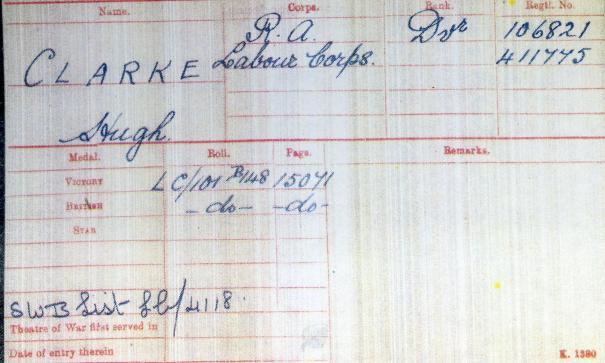 Name. Corps. Rank. Regtl. No.
CLARKE R.A. Dvr 106821
Labour Corps. 411775
Hugh.
Medal. Roll. Page. Remarks.
VICTORY LC/101 B148 15071
BRITISH -do- -do-
STAR
SWB List LC/4118.
Theatre of War first served in
Date of entry therein
K. 1380